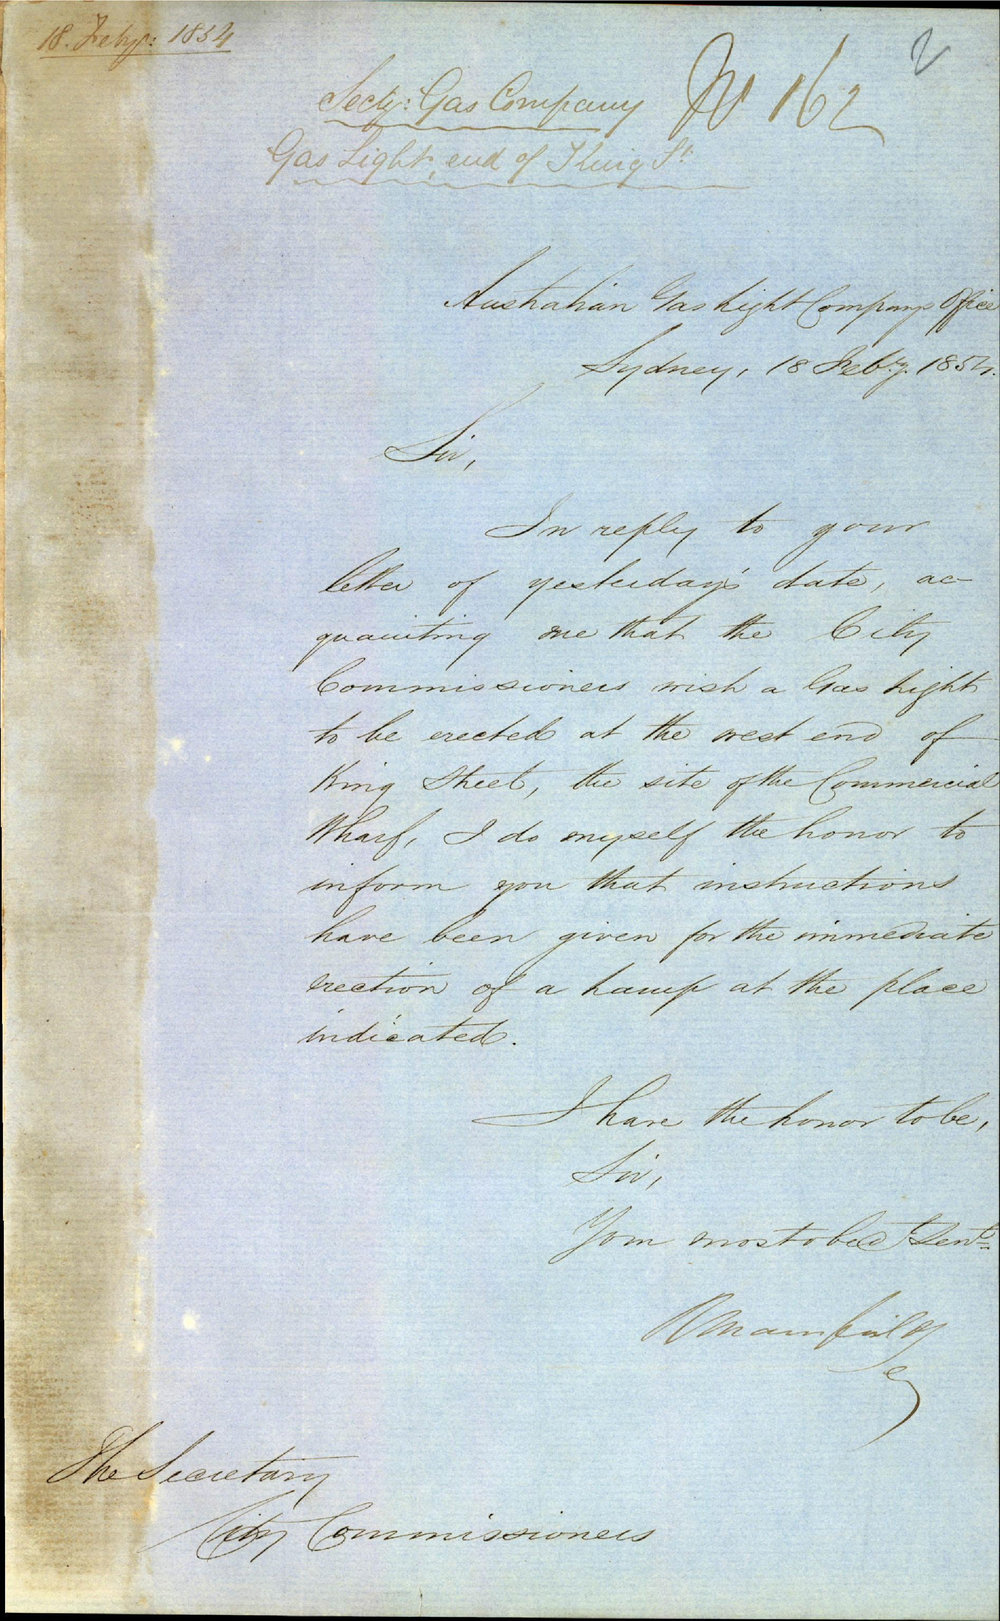 18. Feby: 1854
2
Secty: Gas Company No 162
Gas Light, end of King St.
Australian Gas Light Company's Office
Sydney, 18 Feby. 1854.
Sir,
In reply to your
letter of yesterday's date, ac-
quainting me that the City
Commissioners wish a Gas Light
to be erected at the west end of
King Street, the site of the Commercial
Wharf, I do myself the honor to
inform you that instructions
have been given for the immediate
erection of a Lamp at the place
indicated.
I have the honor to be,
Sir,
Your most obed Servt
The Secretary
City Commissioners